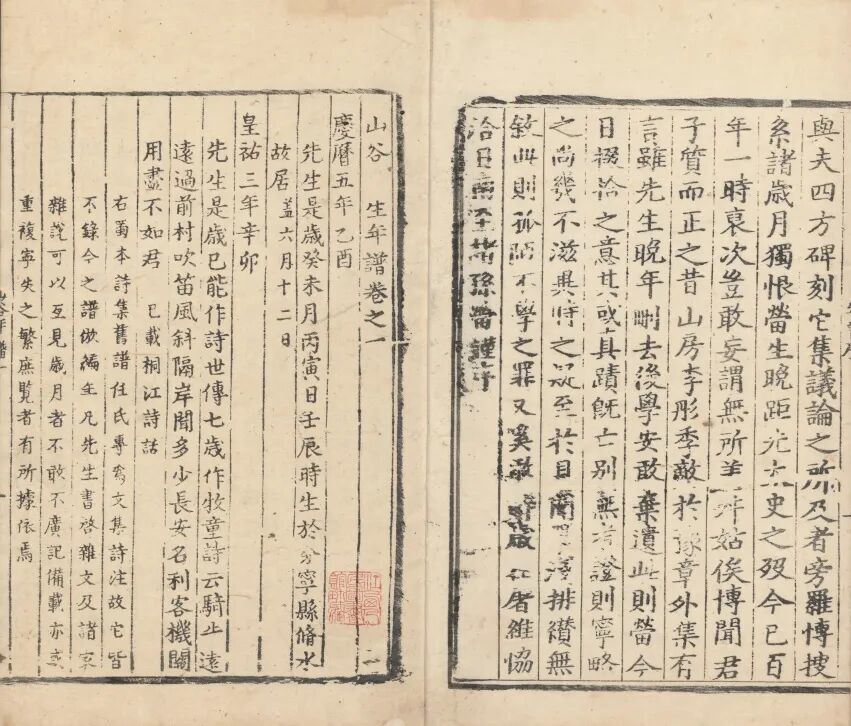 與夫四方碑刻它集議論之所及者旁羅愽搜
系諸歲月獨恨㽦生晚距元太史之歿今已百
年一時裒次豈敢妄謂無所差姑俟博聞君
子質而正之昔山房李彤季敵於豫章外集有
言雖先生晚年刪去後學安敢棄遺此則㽦今
日掇拾之意其或真蹟旣亡別無考證則寧略
之尚幾不滋異時之疑至於目淺排纉無
敘此則孤陋不學之罪又奚敢辭歲者維協
洽日南至諸孫㽦謹序
山谷 生年譜卷之一
慶曆五年乙酉
先生是歲癸未月丙寅日壬辰時生於分寧縣脩水
故居盖六月十二日
皇祐三年辛卯
先生是歲已能作詩世傳七歲作牧童詩云騎牛遠
遠過前村吹笛風斜隔岸聞多少長安名利客機關
用盡不如君 已載桐江詩話
右蜀本詩集舊譜任氏專爲文集詩注故它皆
不錄今之譜倣編年凡先生書啓雜文及諸家
雜說可以互見歲月者不敢不廣記備載亦或
重複寧失之繁庶覧者有所據依焉